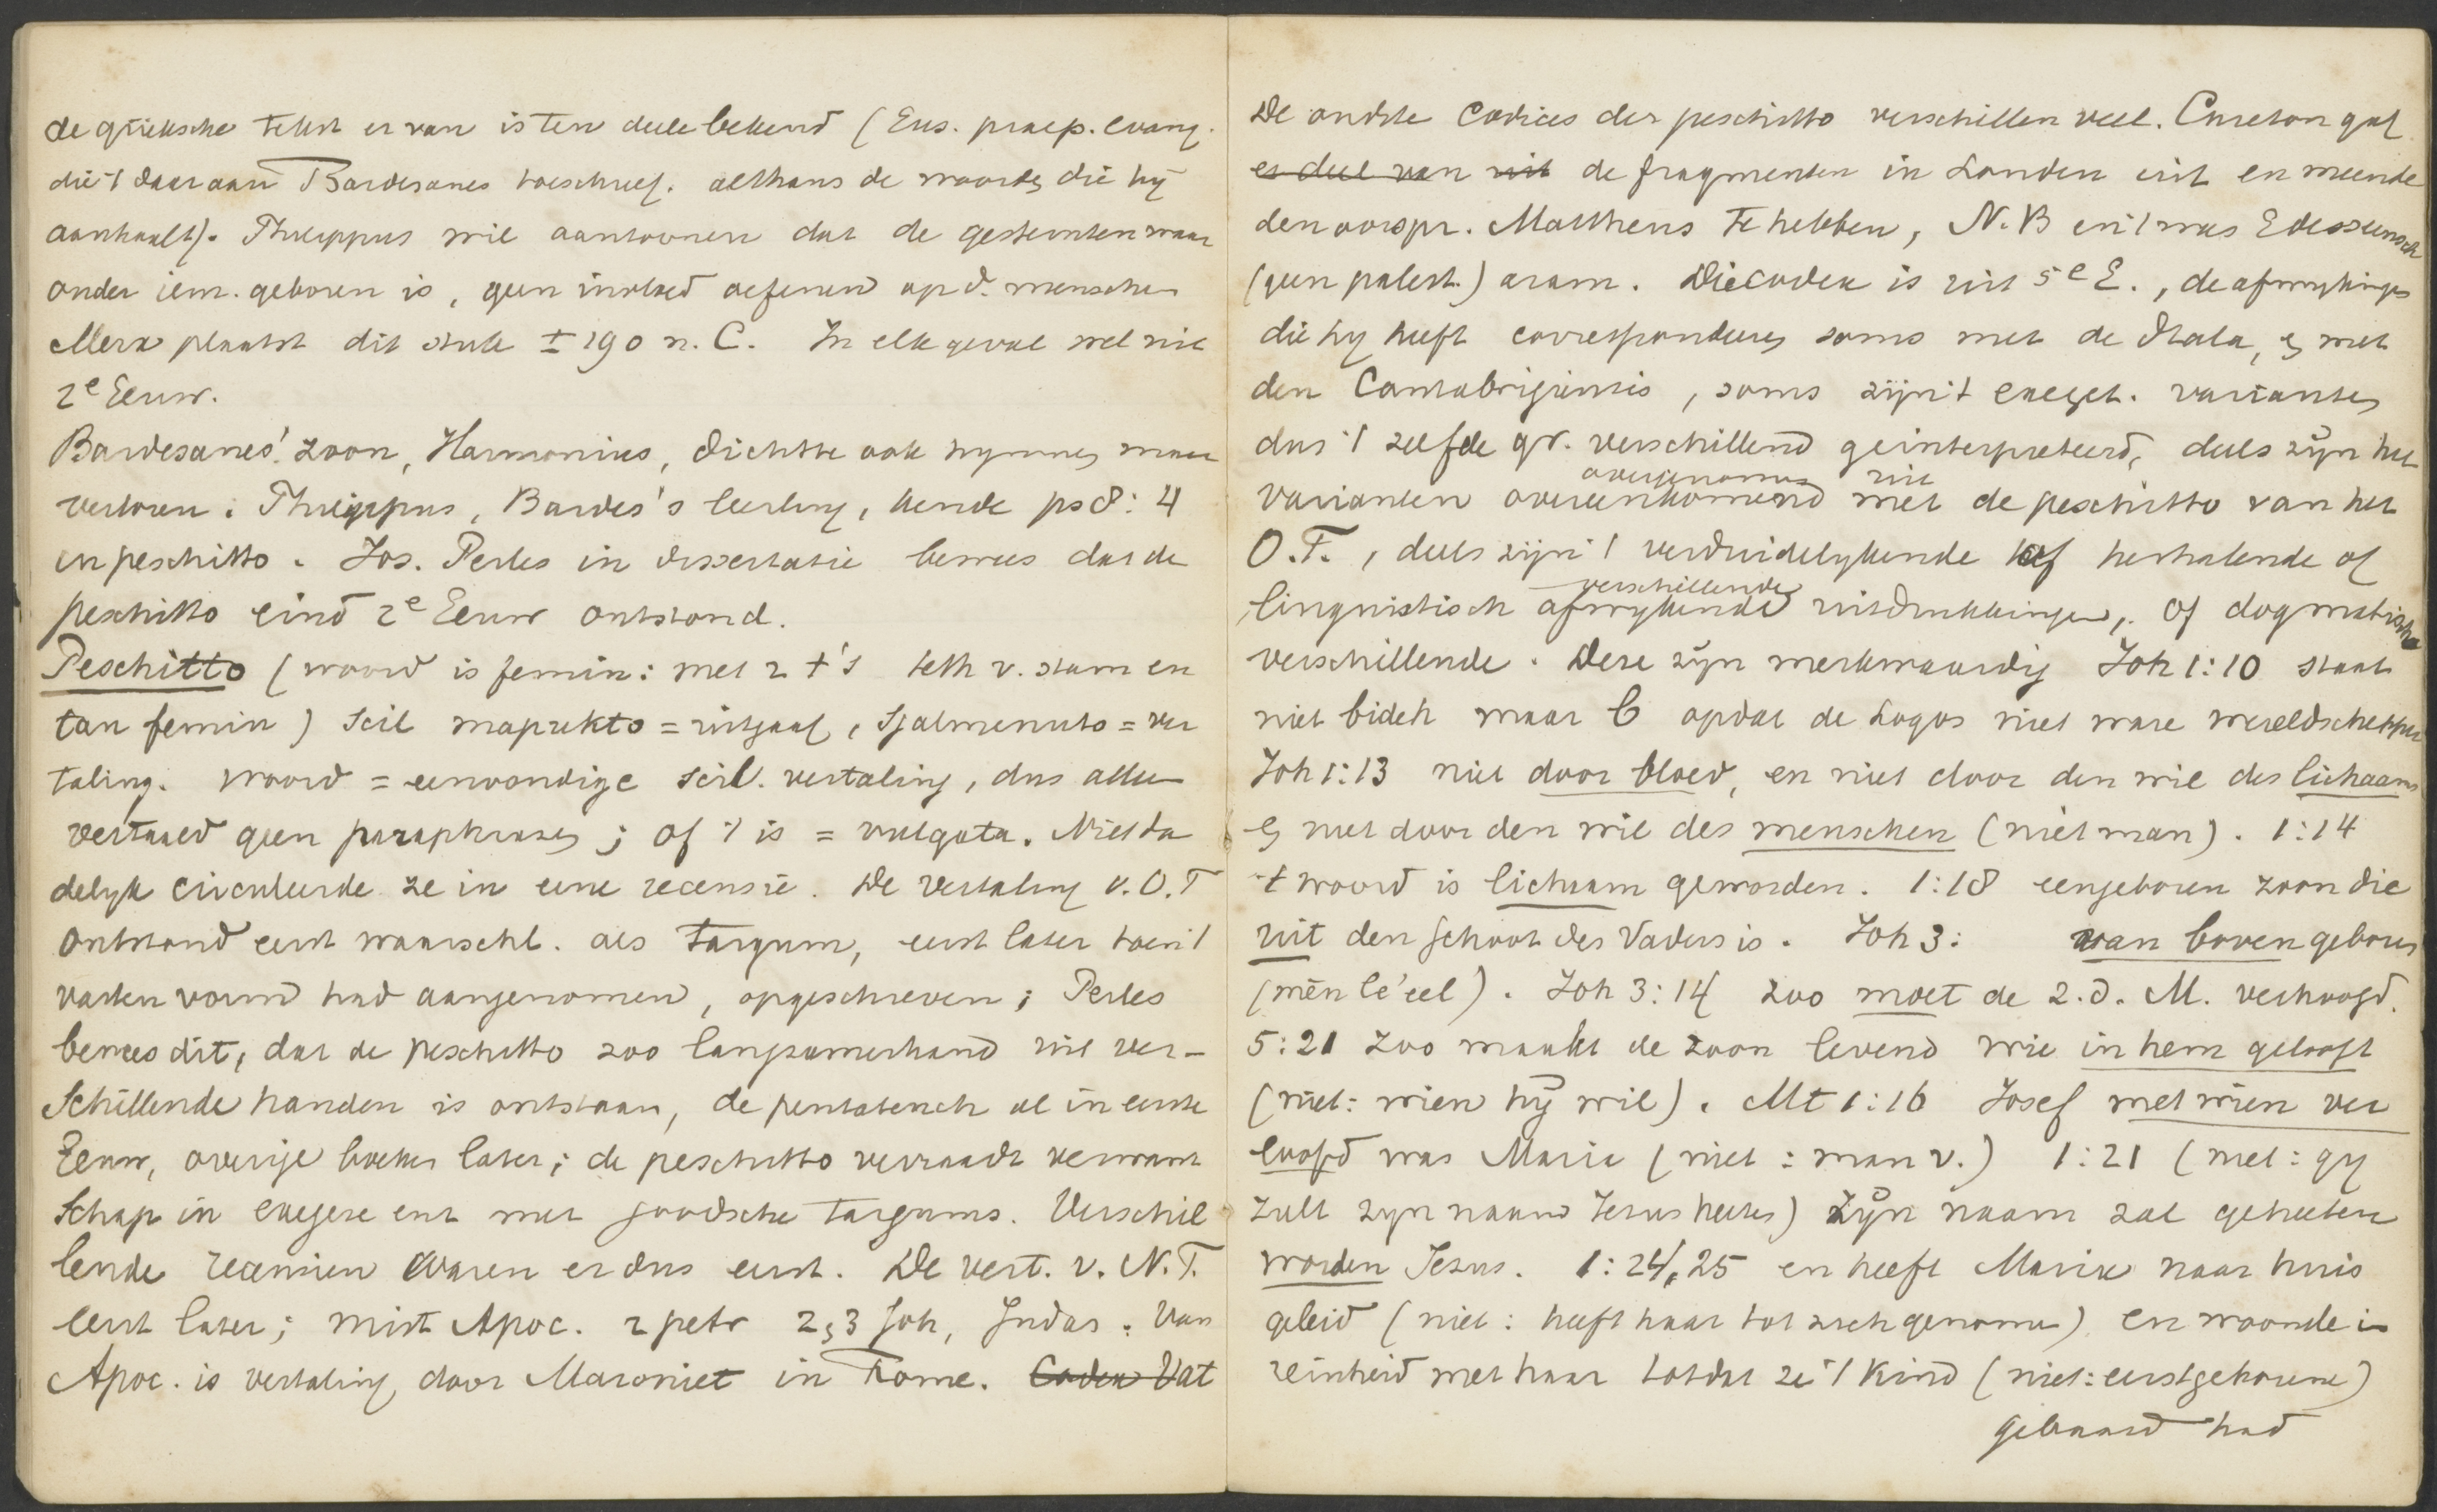 de grieksche tekst er van is ten deele bekend (Eus. praep. evang.
die 't daar aan Bardesanes toeschreef. althans de woorden die hij
aanhaalt). Philippus wil aantoonen dat de gesternten waar
onder iem. geboren is, geen invloed oefenen op d. menschen
Merx plaatst dit stuk ± 190 n. C. In elk geval wel uit
2e Eeuw.
Bardesanes' zoon, Harmonius, dichtte ook hymnen maar
verloren. Philippus, Bardes's leerling, kende ps 8:4
in peschitto. Jos. Perles in dissertatie bewees dat de
peschitto eind 2e Eeuw ontstond.
Peschitto (woord is femin: met 2 t's teth v. stam en
tau femin) scil mapakto = uitgaaf, Sjalmenuto = ver
taling. woord = eenvoudige scil. vertaling, dus alleen
vertaald geen paraphrases; of 't is = vulgata. Niet da
delijk circuleerde ze in eene recensie. De vertaling v. O.T
ontstond eerst waarschl. als targum, eerst later toen 't
vasten vorm had aangenomen, opgeschreven; Perles
bewees dit, dat de peschitto zoo langzamerhand uit ver-
schillende handen is ontstaan, de pentateuch al in eerste
Eeuw, overige boeken later; de peschitto verraadt verwant
schap in exegese enz met joodsche targums. Verschil
lende recensien waren er dus eerst. De vert. v. N.T.
eerst later; mist Apoc. 2 petr 2,3 Joh, Judas. Van
Apoc. is vertaling door Maroniet in Rome. Codex Vat
De oudste codices der peschitto verschillen veel. Cureton gaf
er deel van uit de fragmenten in Londen uit en meende
den oorspr. Mattheus te hebben, N.B en 't was Edesseensch
(geen palest.) aram. Die codex is uit 5e E., de afwijkingen
die hij heeft correspondeeren soms met de Itala, en met
den Cantabrigiensis, soms zijn 't exeget. varianten
dus 't zelfde gr. verschillend geinterpreteerd, deels zijn het
overgenomen uit
varianten overeenkomend met de peschitto van het
O.T., deels zijn 't verduidelijkende of herhalende of
verschillende
linguistisch afwijkende uitdrukkingen, of dogmatische
verschillende. Deze zijn merkwaardig Joh 1:10 staat
niet bideh maar b opdat de Logos niet ware wereldschepper
Joh 1:13 niet door bloed, en niet door den wil des lichaams
en niet door den wil des menschen (niet man). 1:14
't woord is lichaam geworden. 1:18 eengeboren zoon die
uit den schoot des Vaders is. Joh 3: van boven geboren
(mēn lé'eel). Joh 3:14 zoo moet de Z.d. M. verhoogd.
5:21 zoo maakt de zoon levend wie in hem gelooft
(niet: wien hij wil). Mt 1:16 Josef met wien ver
loofd was Maria (niet: man v.) 1:21 (niet: gij
zult zijn naam Jesus heeten) zijn naam zal geheeten
worden Jesus. 1:24,25 en heeft Maria naar huis
geleid (niet: heeft haar tot zich genomen) en woonde in
reinheid met haar totdat ze 't kind (niet: eerstgeborene)
gebaard had